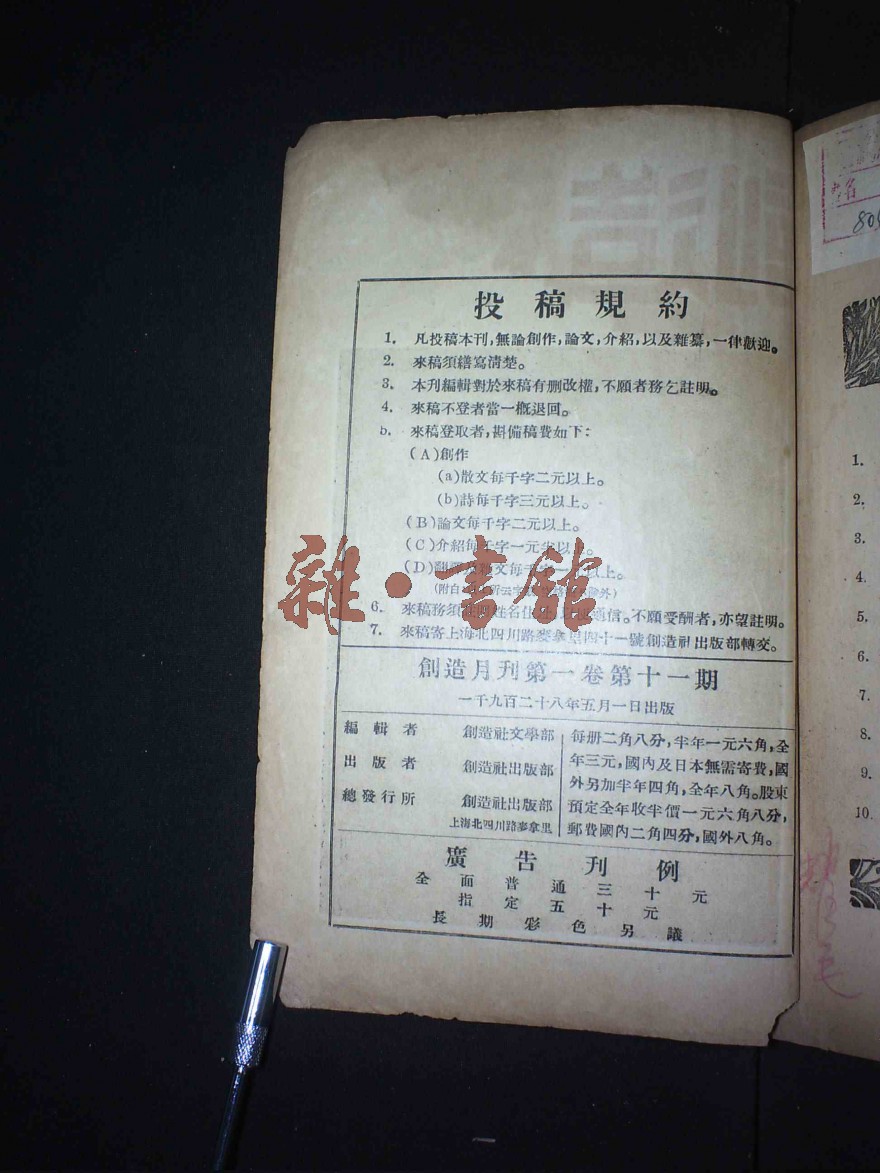 投稿規約
1. 凡投稿本刊,無論創作,論文,介紹,以及雜纂,一律歡迎。
2. 來稿須繕寫清楚。
3. 本刊編輯對於來稿有删改權,不願者務乞註明。
4. 來稿不登者當一概退回。
5. 來稿登取者,斟備稿費如下:
(A)創作
(a)散文每千字二元以上。
(b)詩每千字三元以上。
(B)論文每千字二元以上。
(C)介紹每千字一元半以上。
(D)翻譯 文每千字一 以上。
(附白
6. 來稿務須 姓名住 通信。不願受酬者,亦望註明。
7. 來稿寄上海北四川路麥拿里四十一號創造社出版部轉交。
雜·書館
創造月刊第一卷第十一期
一千九百二十八年五月一日出版
編輯者 創造社文學部
出版者 創造社出版部
總發行所 創造社出版部
上海北四川路麥拿里
每册二角八分,半年一元六角,全
年三元,國內及日本無需寄費,國
外另加半年四角,全年八角。股東
預定全年收半價一元六角八分,
郵費國內二角四分,國外八角。
廣告刊例
全面普通三十元
指定五十元
長期彩色另議
1.
2.
3.
4.
5.
6.
7.
8.
9.
10.